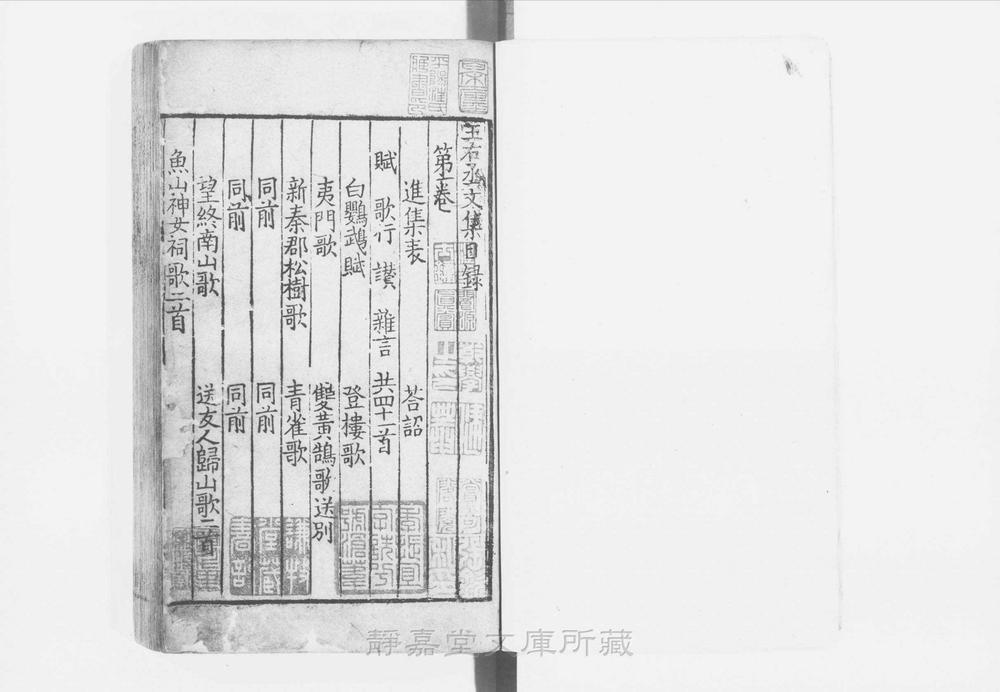 王右丞文集目録
第一卷
進集表　荅詔
賦　歌行　讃　雜言　共四十一首
白鸚鵡賦　登樓歌
夷門歌　雙黃鵠歌送別
新秦郡松樹歌　青雀歌
同前　同前
同前　同前
望終南山歌　送友人歸山歌二首
魚山神女祠歌二首
靜嘉堂文庫所藏